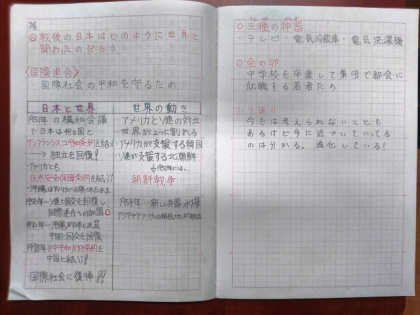 ◎戦後の日本はどのように世界と
関わったのだろう
〈国際連合〉
国際社会の平和を守るため
日本と世界
の講和会議
で日本は48ヵ国と
サンフランシスコ平和条約を結ぶ
→独立を回復!
アメリカとも
日米安全保障条約も結ぶ
ソ連と国交を回復し
国際連合への加盟
中国と国交を回復
日中平和友好条約を
中国と結ぶ!
国際社会に復帰!!
世界の動き
アメリカとソ連の対立
世界が2つに割れる
アメリカが支援する韓国
ソ連が支援する北朝鮮
朝鮮戦争
◎三種の神器
テレビ・電気冷蔵庫・電気洗濯機
◎金の卵
中学校を卒業して集団で都会に
就職する若者たち
ふり返り
今では考えられないことも
あるけど今に近づいていってる
のは分かる。進化している!